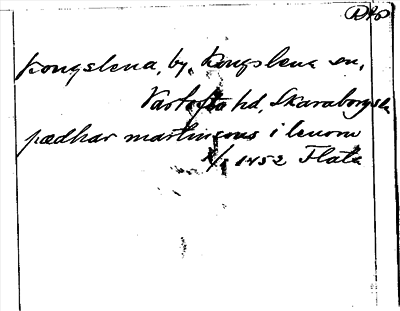 Kongslena, by, Kongslena sn,
Vartofta hd, Skaraborgs
pædhar martinsons i lenom
1452 Flata